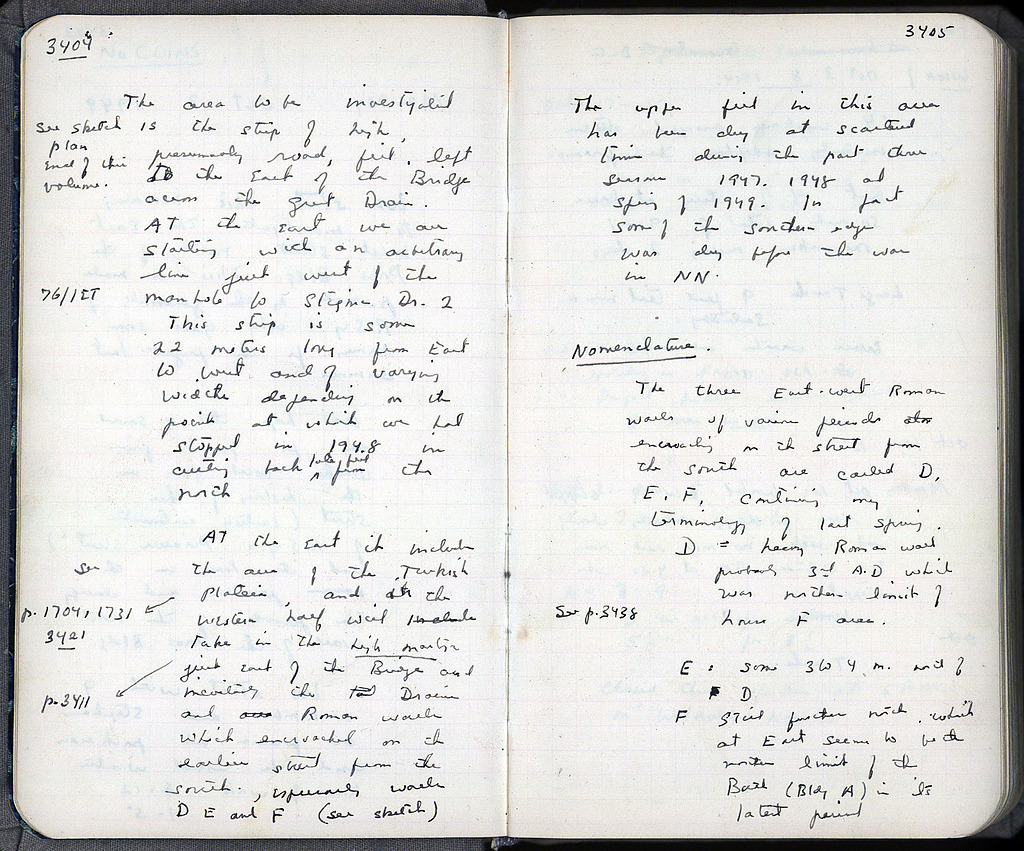 3404
The area to be investigated
see sketch plan end of this volume.
is the strip of high,
presumably road, fill, left
to the East of the Bridge
across the great Drain.
At the East we are
starting with an arbitrary
line just west of the
76/IET
manhole to Stegma Dr. 2
This strip is some
22 meters long from East
to West and of varying
widths depending on the
points at which we had
stopped in 1948 in
cutting back late fill from the
north
At the East it includes
see
the area of the Turkish
p. 1704, 1731
3421
Platein, and the
western half will include
take in the high
just east of the Bridge and
p. 3411
the Drain
and Roman walls
which encroached on the
earlier street from the
south, especially walls
D E and F (see sketch)
3405
The upper fill in this area
has been dug at scattered
times during the past three
seasons 1947. 1948 and
Spring of 1949. In fact
some of the southern edge
was dug before the war
in NN.
Nomenclature.
The three East-west Roman
walls of various periods
encroaching on the street from
the south are called D,
E, F, continuing my
terminology of last spring.
D = heavy Roman wall
probably 3rd A.D which
was northern limit of
See p. 3438
house F area.
E = some 3 to 4 m. north of
D
F still further north, which
at East seems to be the
northern limit of the
Bath (Bldg A) in its
latest period